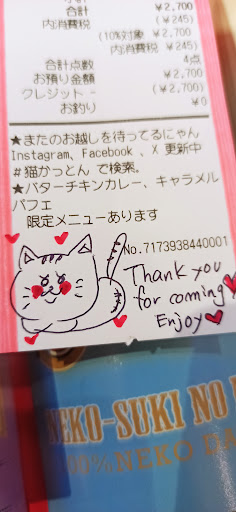 小計
合計 ¥2,700
内消費税 (¥245)
(10%対象 ¥2,700
内消費税 ¥245)
合計点数 4点
お預り金額 ¥2,700
クレジット - (¥2,700)
お釣り ¥0
★またのお越しを待ってるにゃん
Instagram、Facebook 、X 更新中
#猫かっとん で検索。
★バターチキンカレー、キャラメル
パフェ
限定メニューあります
No.7173938440001
Thank you
for coming
Enjoy
NEKO-SUKI NO
NEKO DA